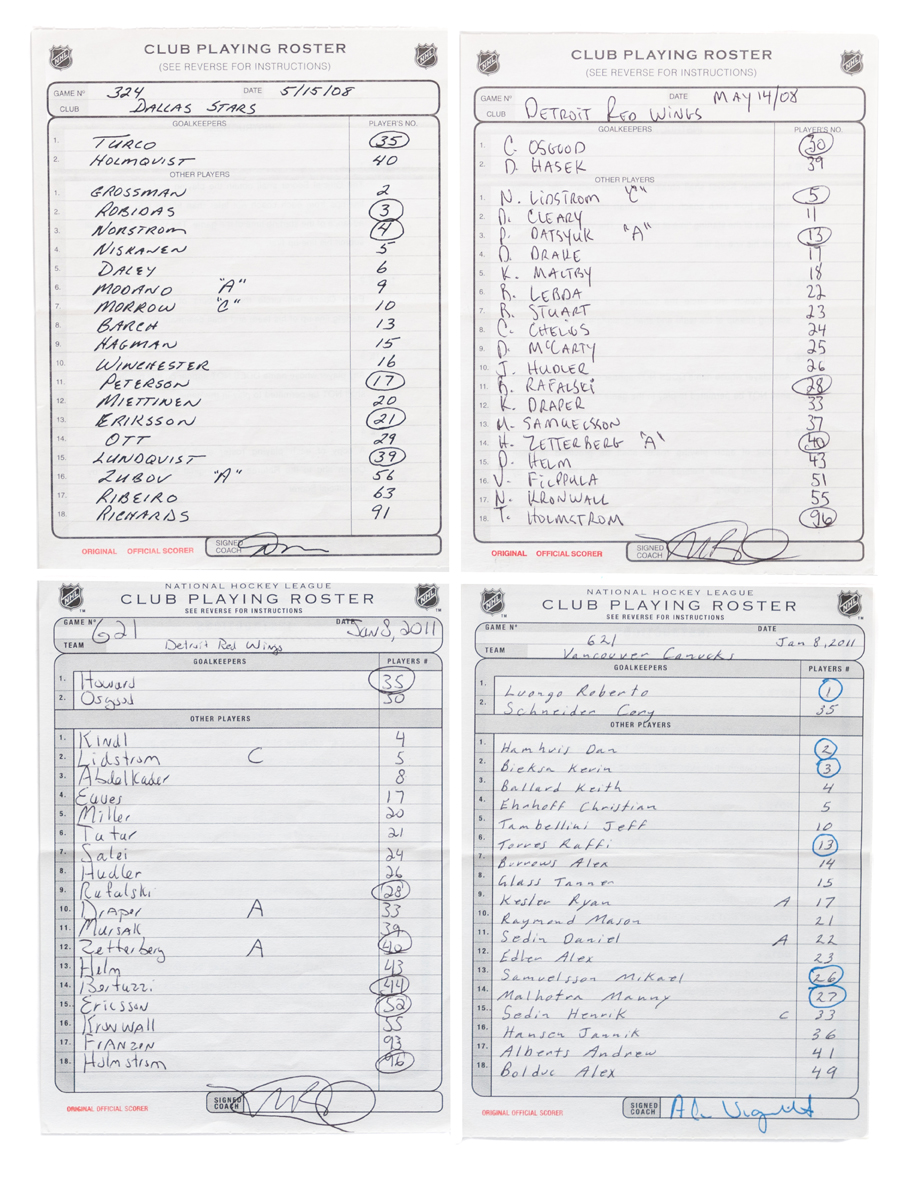 CLUB PLAYING ROSTER
(SEE REVERSE FOR INSTRUCTIONS)
GAME Nº 324 DATE 5/15/08
CLUB DALLAS STARS
GOALKEEPERS PLAYER'S NO.
1. TURCO 35
2. HOLMQVIST 40
OTHER PLAYERS
1. GROSSMAN 2
2. ROBIDAS 3
3. NORSTROM 4
4. NISKANEN 5
5. DALEY 6
6. MODANO "A" 9
7. MORROW "C" 10
8. BARCH 13
9. HAGMAN 15
10. WINCHESTER 16
11. PETERSON 17
12. MIETTINEN 20
13. ERIKSSON 21
14. OTT 29
15. LUNDQVIST 39
16. ZUBOV "A" 56
17. RIBEIRO 63
18. RICHARDS 91
ORIGINAL OFFICIAL SCORER SIGNED COACH
CLUB PLAYING ROSTER
(SEE REVERSE FOR INSTRUCTIONS)
GAME Nº DATE MAY 14/08
CLUB DETROIT RED WINGS
GOALKEEPERS PLAYER'S NO.
1. C. OSGOOD 30
2. D. HASEK 39
OTHER PLAYERS
1. N. LIDSTROM "C" 5
2. D. CLEARY 11
3. P. DATSYUK "A" 13
4. D. DRAKE 17
5. K. MALTBY 18
6. B. LEBDA 22
7. B. STUART 23
8. C. CHELIOS 24
9. D. McCARTY 25
10. J. HUDLER 26
11. B. RAFALSKI 28
12. K. DRAPER 33
13. M. SAMUELSSON 37
14. H. ZETTERBERG "A" 40
15. D. HELM 43
16. V. FILPPULA 51
17. N. KRONWALL 55
18. T. HOLMSTROM 96
ORIGINAL OFFICIAL SCORER SIGNED COACH
NATIONAL HOCKEY LEAGUE
CLUB PLAYING ROSTER
SEE REVERSE FOR INSTRUCTIONS
GAME Nº 621 DATE Jan 8, 2011
TEAM Detroit Red Wings
GOALKEEPERS PLAYERS #
1. Howard 35
2. Osgood 30
OTHER PLAYERS
1. Kindl 4
2. Lidstrom C 5
3. Abdelkader 8
4. Eaves 17
5. Miller 20
6. Tatar 21
7. Salei 24
8. Hudler 26
9. Rafalski 28
10. Draper A 33
11. Mursak 39
12. Zetterberg A 40
13. Helm 43
14. Bertuzzi 44
15. Ericsson 52
16. Kronwall 55
17. Franzin 93
18. Holmstrom 96
ORIGINAL OFFICIAL SCORER SIGNED COACH
NATIONAL HOCKEY LEAGUE
CLUB PLAYING ROSTER
SEE REVERSE FOR INSTRUCTIONS
GAME Nº 621 DATE Jan 8, 2011
TEAM Vancouver Canucks
GOALKEEPERS PLAYERS #
1. Luongo Roberto 1
2. Schneider Cory 35
OTHER PLAYERS
1. Hamhuis Dan 2
2. Bieksa Kevin 3
3. Ballard Keith 4
4. Ehrhoff Christian 5
5. Tambellini Jeff 10
6. Torres Raffi 13
7. Burrows Alex 14
8. Glass Tanner 15
9. Kesler Ryan A 17
10. Raymond Mason 21
11. Sedin Daniel A 22
12. Edler Alex 23
13. Samuelsson Mikael 26
14. Malhotra Manny 27
15. Sedin Henrik C 33
16. Hansen Jannik 36
17. Alberts Andrew 41
18. Bolduc Alex 49
ORIGINAL OFFICIAL SCORER SIGNED COACH